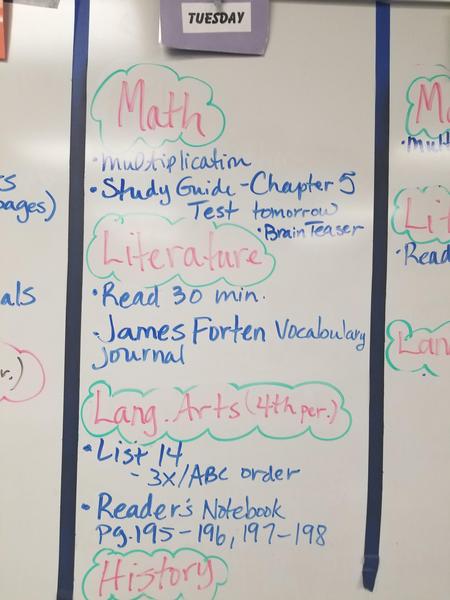 TUESDAY
Math
• multiplication
• Study Guide - Chapter 5
Test tomorrow
• Brain Teaser
Literature
• Read 30 min.
• James Forten Vocabulary
Journal
Lang. Arts (4th per.)
• List 14
- 3x/ABC order
• Reader's Notebook
pg. 195-196, 197-198
History
pages)
als
r.)
Ma
• mult
Lit
• Read
Lan